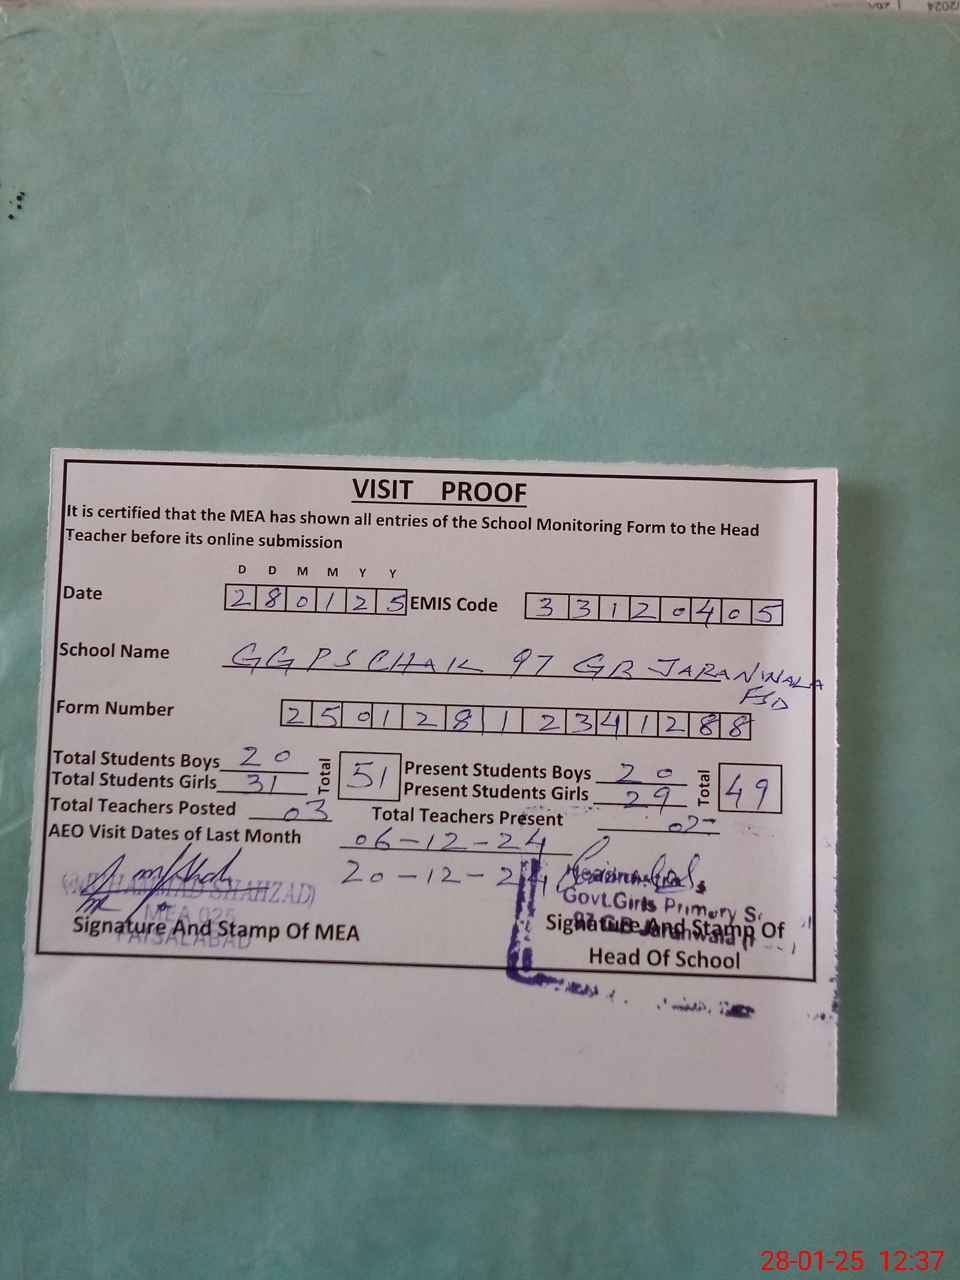 VISIT PROOF
It is certified that the MEA has shown all entries of the School Monitoring Form to the Head
Teacher before its online submission
D D M M Y Y
Date 280125 EMIS Code 33120405
School Name GGPS CHAK 97 GB JARANWALA
FSD
Form Number 250128112341288
Total Students Boys 20 Total 51 Present Students Boys 20 Total 49
Total Students Girls 31 Present Students Girls 29
Total Teachers Posted 03 Total Teachers Present 02
AEO Visit Dates of Last Month 06-12-24
20-12-24
(MUHAMMAD SHAHZAD)
MEA 025
FAISALABAD
Signature And Stamp Of MEA
Headmistress
Govt.Girls Primary S
97 GB Jaranwala
Signature And Stamp Of
Head Of School
28-01-25 12:37